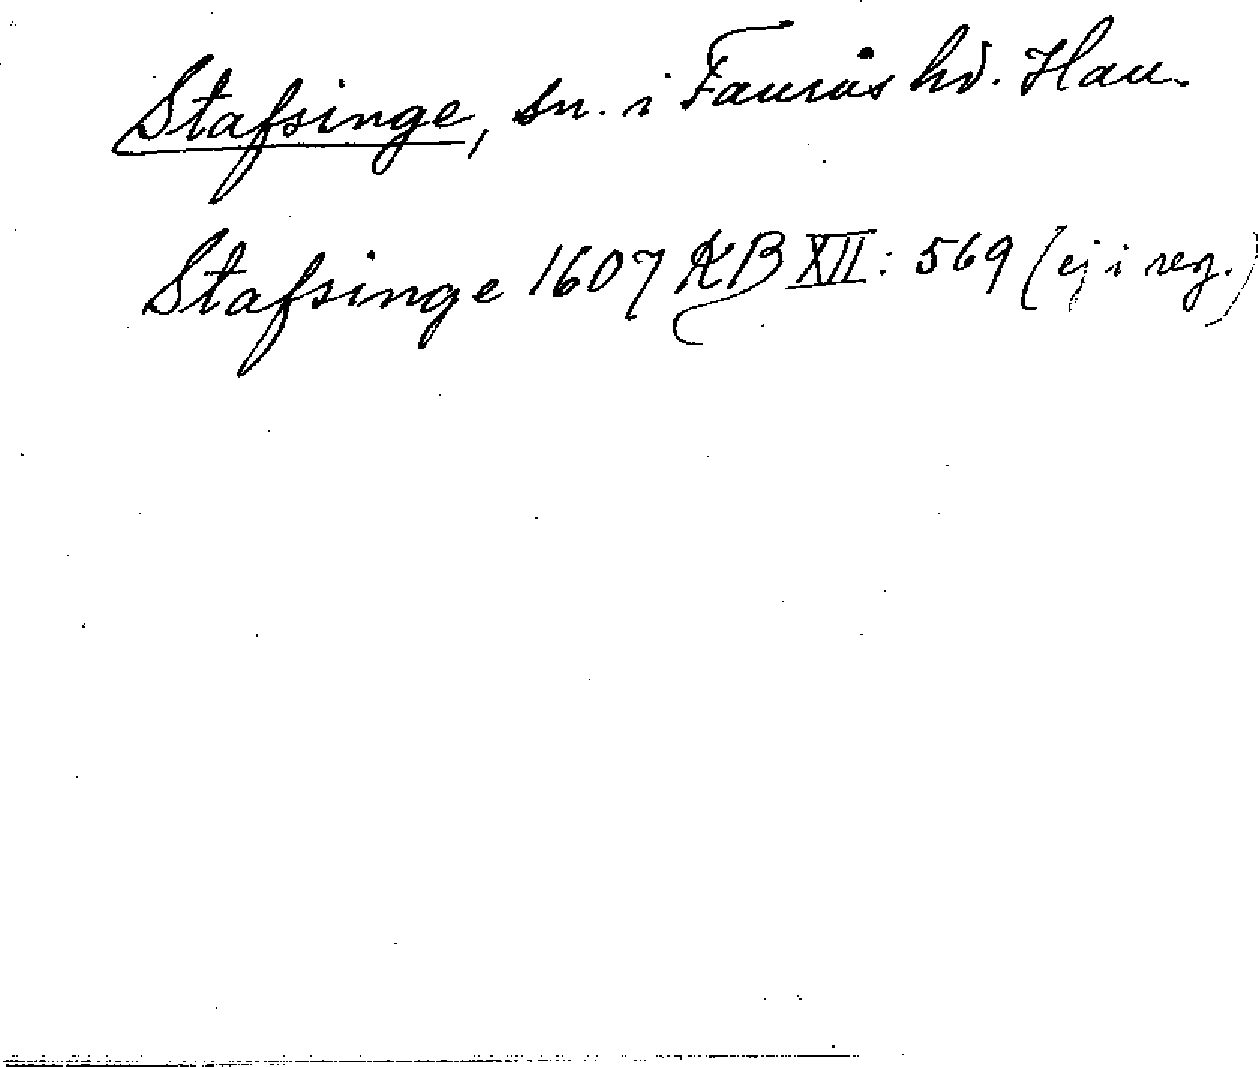 Stafsinge, sn. i Faurås hd. Hall.
Stafsinge 1607 KB XII: 569 (ej i reg.)